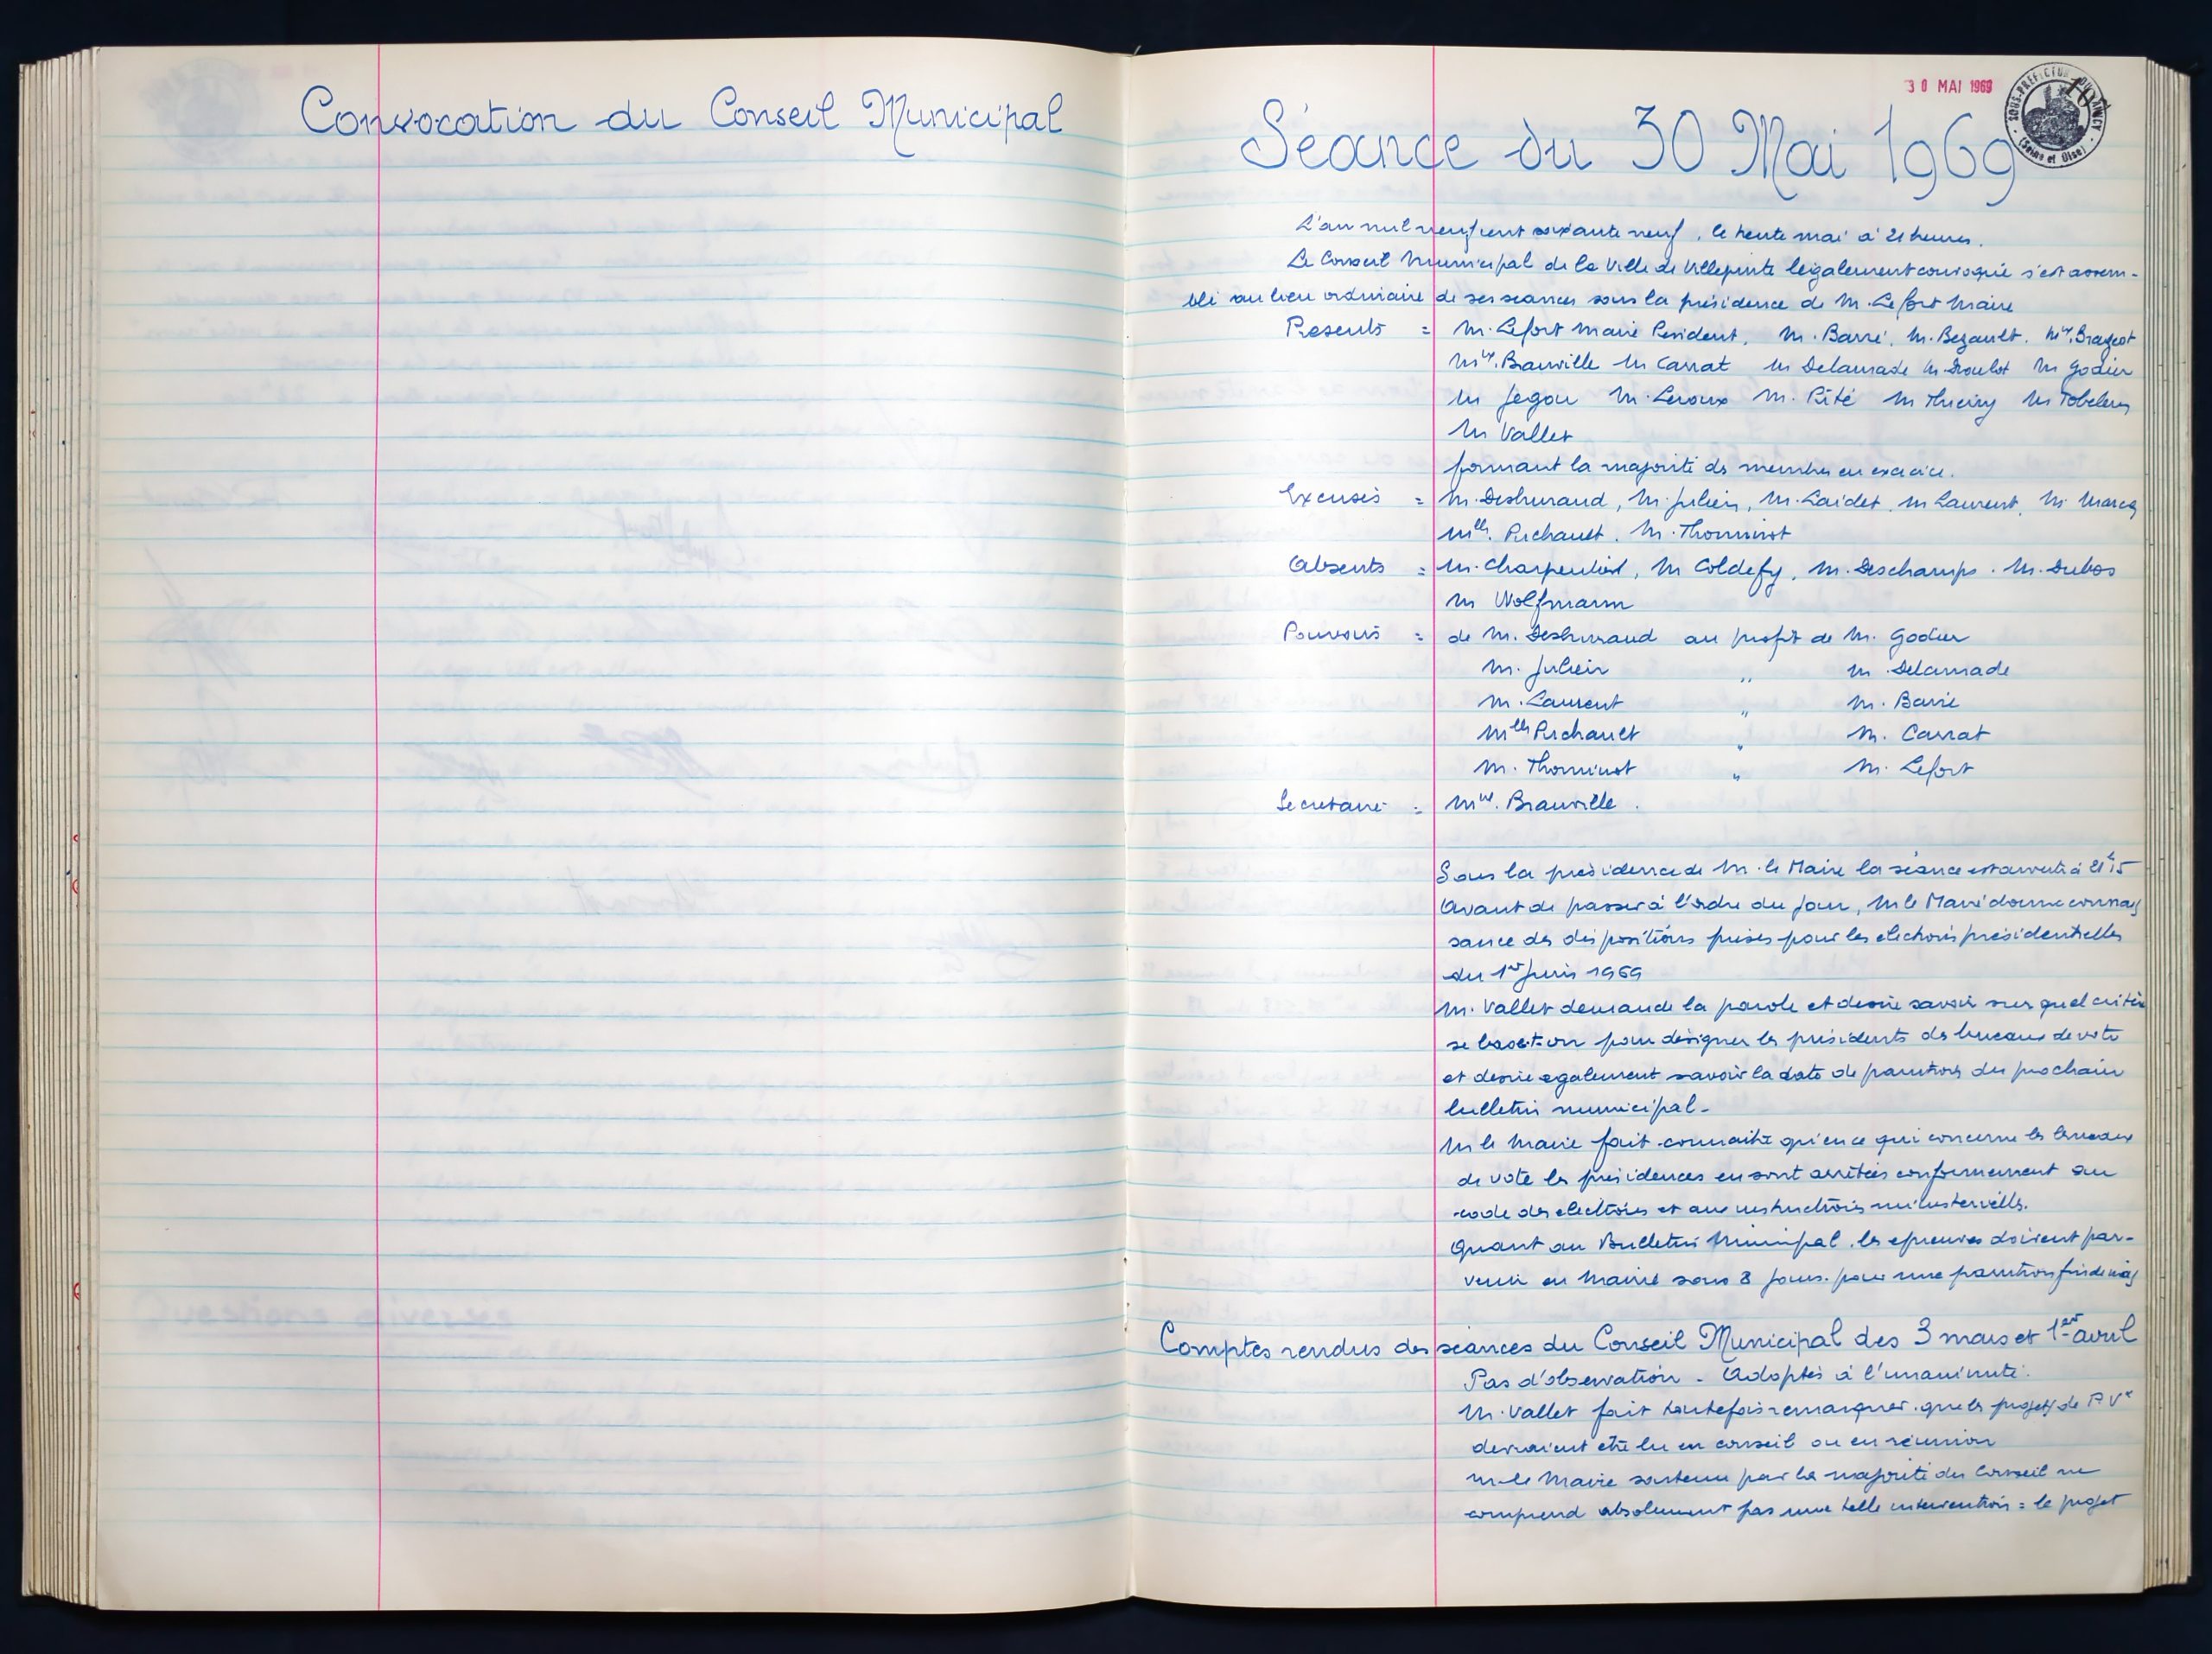 Convocation du Conseil Municipal
30 MAI 1969
SOUS-PRÉFECTURE
(Seine et Oise)
Séance du 30 Mai 1969
L'an mil neuf cent soixante neuf, le trente mai à 21 heures.
Le Conseil Municipal de la Ville de Villepinte légalement convoqué s'est assem-
blé au lieu ordinaire de ses séances sous la présidence de M. Lefort Maire
Présents = M. Lefort Maire Président, M. Barré, M. Bezault, Mme Brageot
Mme Brauville M Carrat M Delamade M Droulot M Godier
M Jegou M. Leroux M. Pité M Thierry M Tobelem
M Vallet
formant la majorité des membres en exercice.
Excusés = M. Desbruraud, M. Julien, M. Laidet, M Laurent, M. Marcq
Mlle Puchault, M. Thominot
Absents = M. Charpentier, M Coldefy, M. Deschamps. M. Dubos
M Wolfmann
Pouvoirs = de M. Desbruraud au profit de M. Godier
M. Julien " M. Delamade
M. Laurent " M. Barré
Mlle Puchault " M. Carrat
M. Thominot " M. Lefort
Secretaire = Mme Brauville.
Sous la présidence de M. le Maire la séance est ouverte à 21h15
Avant de passer à l'ordre du jour, M le Maire donne connais
sance des dispositions prises pour les élections présidentielles
du 1er Juin 1969
M. Vallet demande la parole et désire savoir sur quel critère
se base-t-on pour désigner les présidents des bureaux de vote
et désire également savoir la date de parution du prochain
bulletin municipal-
M le Maire fait connaître qu'en ce qui concerne les bureaux
de vote les présidences en sont arrêtées conformément au
code des élections et aux instructions ministerielles.
Quant au Bulletin Municipal, les épreuves doivent par-
venir en Mairie sous 8 jours. pour une parution fin de mois
Comptes rendus des séances du Conseil Municipal des 3 mars et 1er avril
Pas d'observation - Adoptés à l'unanimité.
M. Vallet fait toutefois remarquer que les projets de P.V.
devraient être lu en conseil ou en réunion
M. le Maire soutenu par la majorité du Conseil ne
comprend absolument pas une telle intervention = le projet